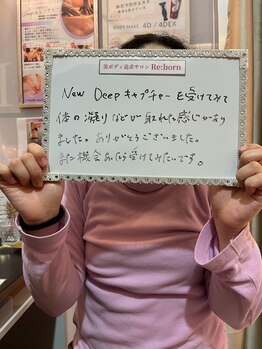 BODY MAKE 4D / 4DEX
美ボディ追求サロン Re:born
New Deepキャプチャーを受けてみて
体の凝りなどが取れた感じがあり
ました。ありがとうございました。
また機会あったら受けてみたいです。